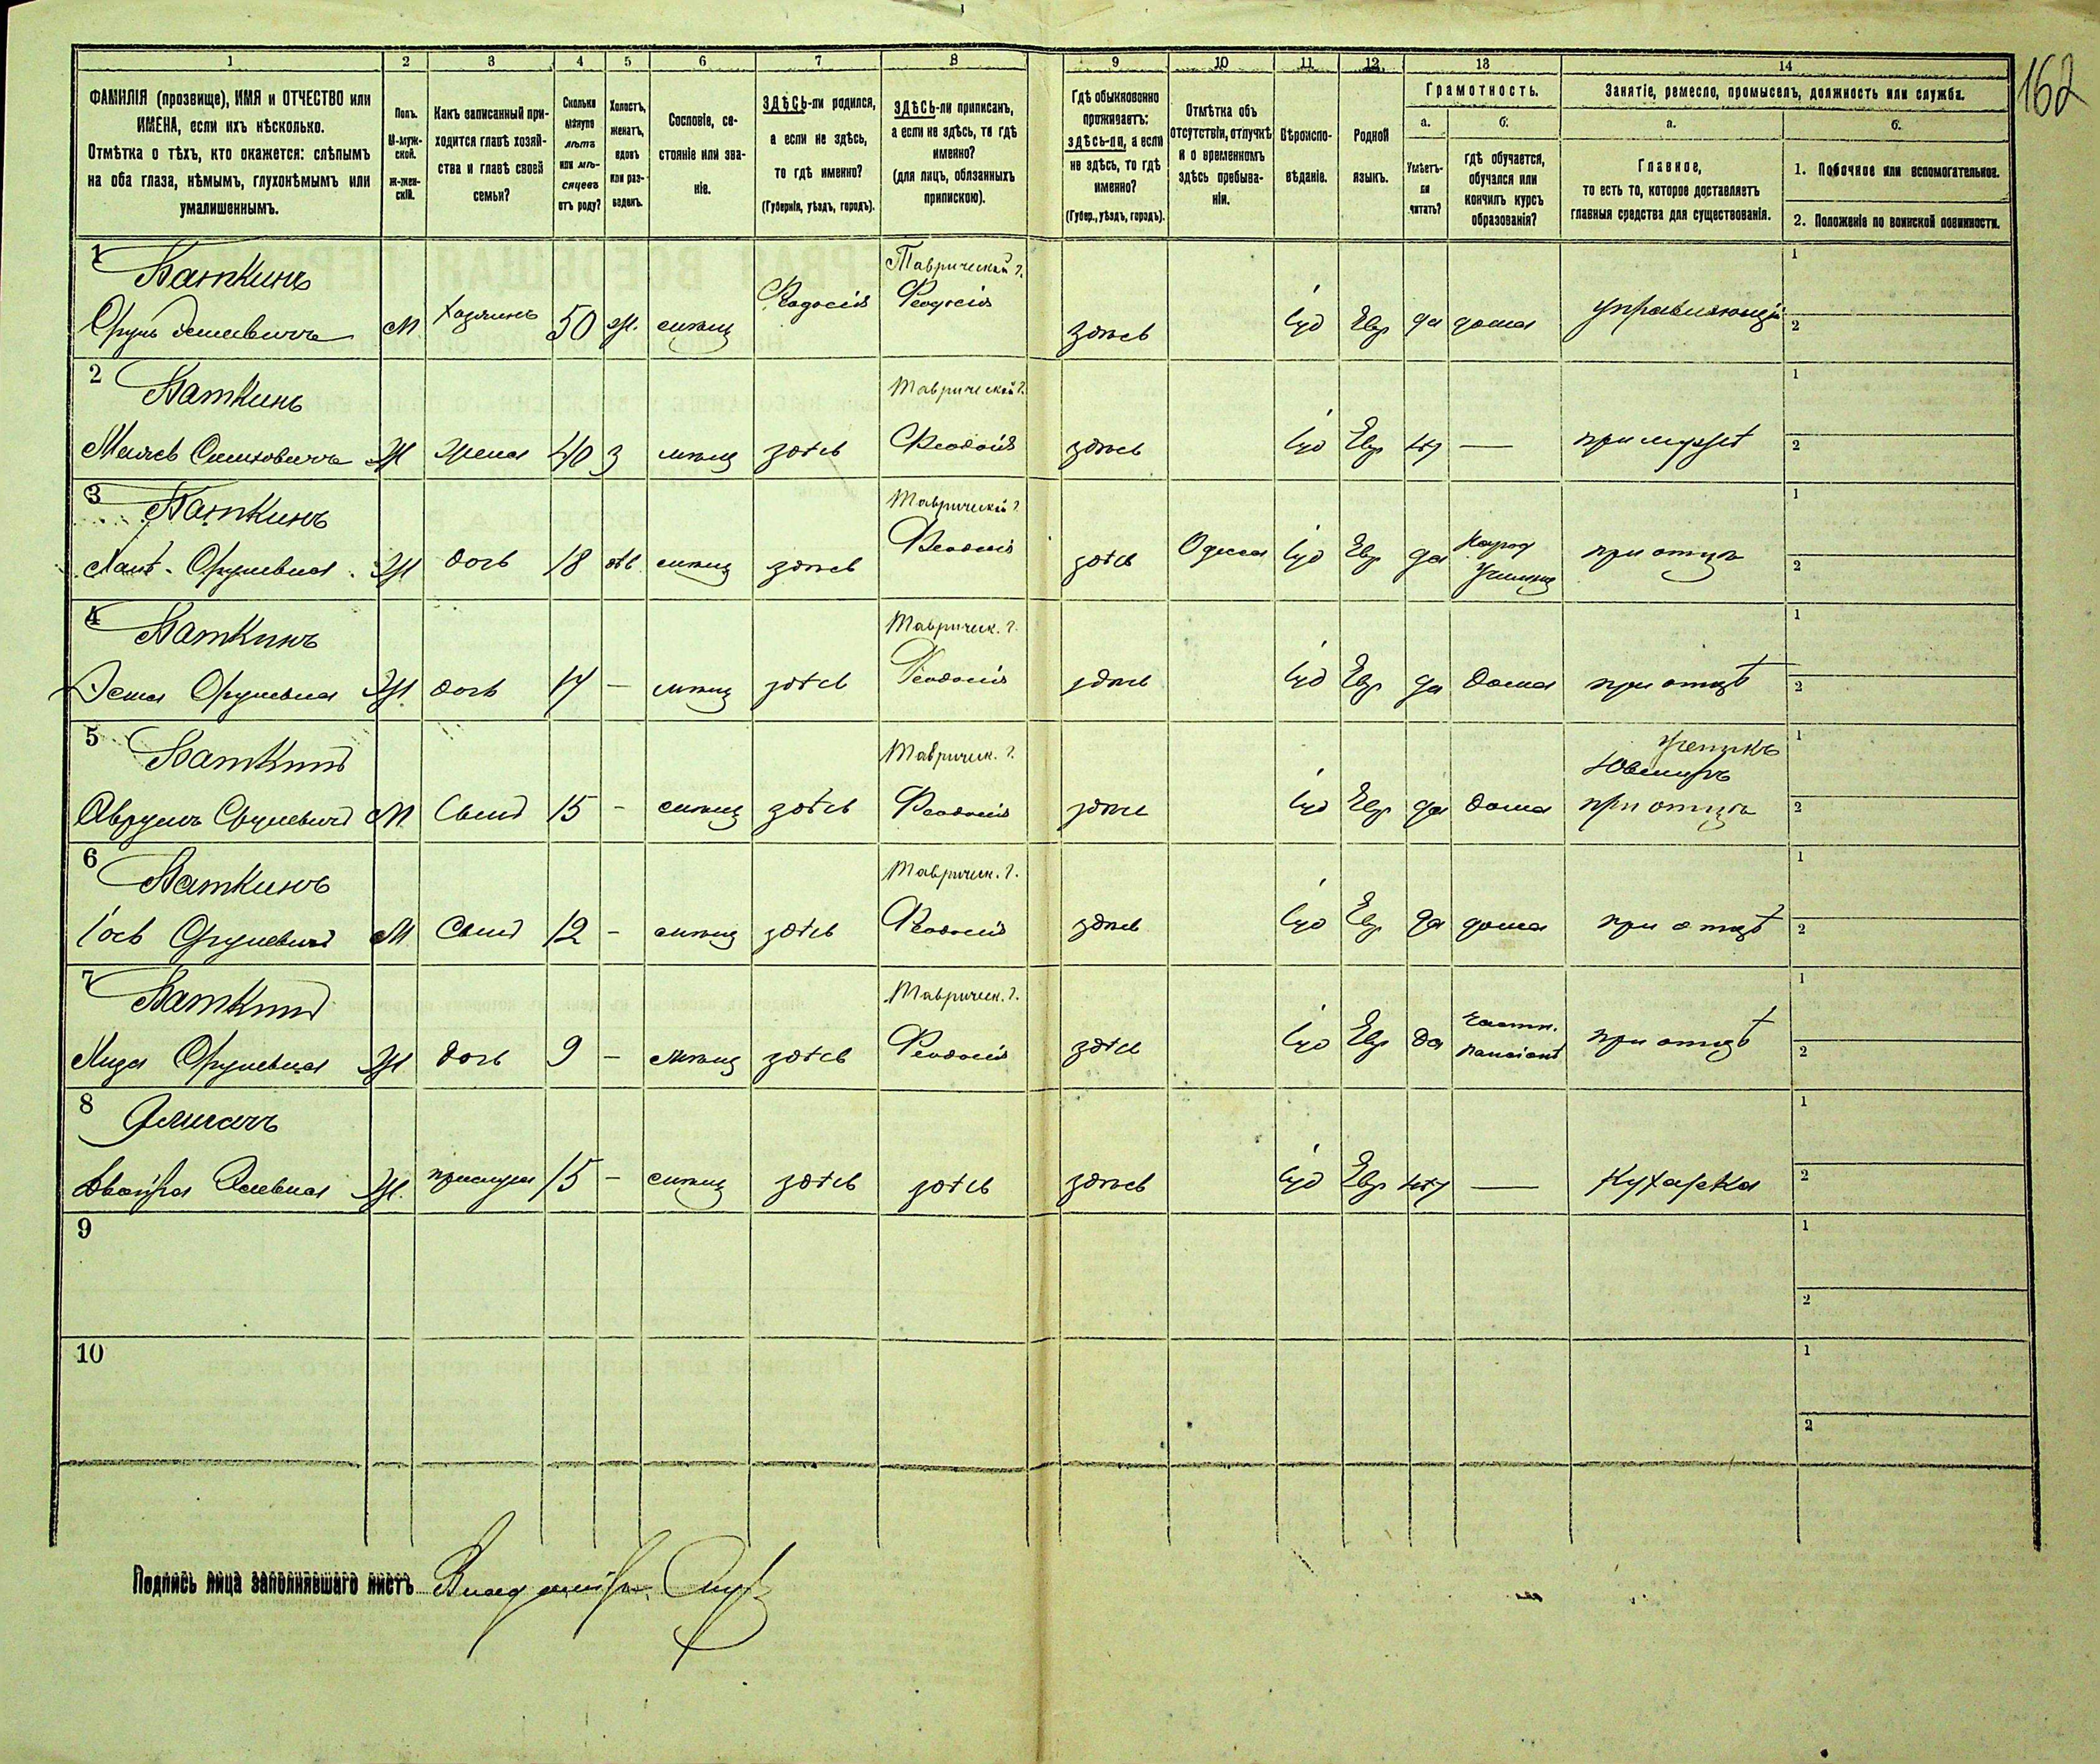 162
1 2 3 4 5 6 7 8 9 10 11 12 13 14
ФАМИЛІЯ (прозвище), ИМЯ и ОТЧЕСТВО или
ИМЕНА, если ихъ нѣсколько.
Отмѣтка о тѣхъ, кто окажется: слѣпымъ
на оба глаза, нѣмымъ, глухонѣмымъ или
умалишеннымъ.
Полъ.
М-муж-
ской.
Ж-жен-
скій.
Какъ записанный при-
ходится главѣ хозяй-
ства и главѣ своей
семьи?
Сколько
минуло
лѣтъ
или мѣ-
сяцевъ
отъ роду?
Холостъ,
женатъ,
вдовъ
или раз-
веденъ.
Сословіе, со-
стояніе или зва-
ніе.
ЗДѢСЬ-ли родился,
а если не здѣсь,
то гдѣ именно?
(Губернія, уѣздъ, городъ).
ЗДѢСЬ-ли приписанъ,
а если не здѣсь, то гдѣ
именно?
(для лицъ, обязанныхъ
припискою).
Гдѣ обыкновенно
проживаетъ:
здѣсь-ли, а если
не здѣсь, то гдѣ
именно?
(Губер., уѣздъ, городъ).
Отмѣтка объ
отсутствіи, отлучкѣ
и о временномъ
здѣсь пребыва-
ніи.
Вѣроиспо-
вѣданіе.
Родной
языкъ.
Грамотность.
а.
Умѣетъ-
ли
читать?
б.
гдѣ обучается,
обучался или
кончилъ курсъ
образованія?
Занятіе, ремесло, промыселъ, должность или служба.
а.
Главное,
то есть то, которое доставляетъ
главныя средства для существованія.
б.
1. Побочное или вспомогательное.
2. Положеніе по воинской повинности.
1 Баткинъ Таврической г. 1
Сруль М Хозяинъ 50 ж. мѣщ Феодосія Феодосія здѣсь іуд Евр да дома управляющій 2
2 Баткинъ Таврической г. 1
Ж жена 40 з мѣщ здѣсь Феодосія здѣсь іуд Евр нѣт — при мужѣ 2
3 Баткинъ Таврической г. 1
Срулевна Ж дочь 18 дѣв мѣщ здѣсь Феодосія здѣсь Одесса іуд Евр да Народ Училищ при отцѣ 2
4 Баткинъ Тавричек. г. 1
Срулевна Ж дочь 17 — мѣщ здѣсь Феодосія здѣсь іуд Евр да дома при отцѣ 2
5 Баткинъ Тавричек. г. ученикъ Ювелиръ 1
Аврумъ Срулевичъ М Сынъ 15 - мѣщ здѣсь Феодосія здѣсь іуд Евр да дома при отцѣ 2
6 Баткинъ Тавричек. г. 1
Іось Срулевичъ М Сынъ 12 - мѣщ здѣсь Феодосія здѣсь іуд Евр да дома при отцѣ 2
7 Баткинъ Тавричек. г. 1
Срулевна Ж дочь 9 - мѣщ здѣсь Феодосія здѣсь іуд Евр да частн. пансіонъ при отцѣ 2
8 1
Двойра Ж. прислуга 15 - мѣщ здѣсь здѣсь здѣсь іуд Евр нѣт — Кухарка 2
9 1
2
10 1
2
Подпись лица заполнявшаго листъ